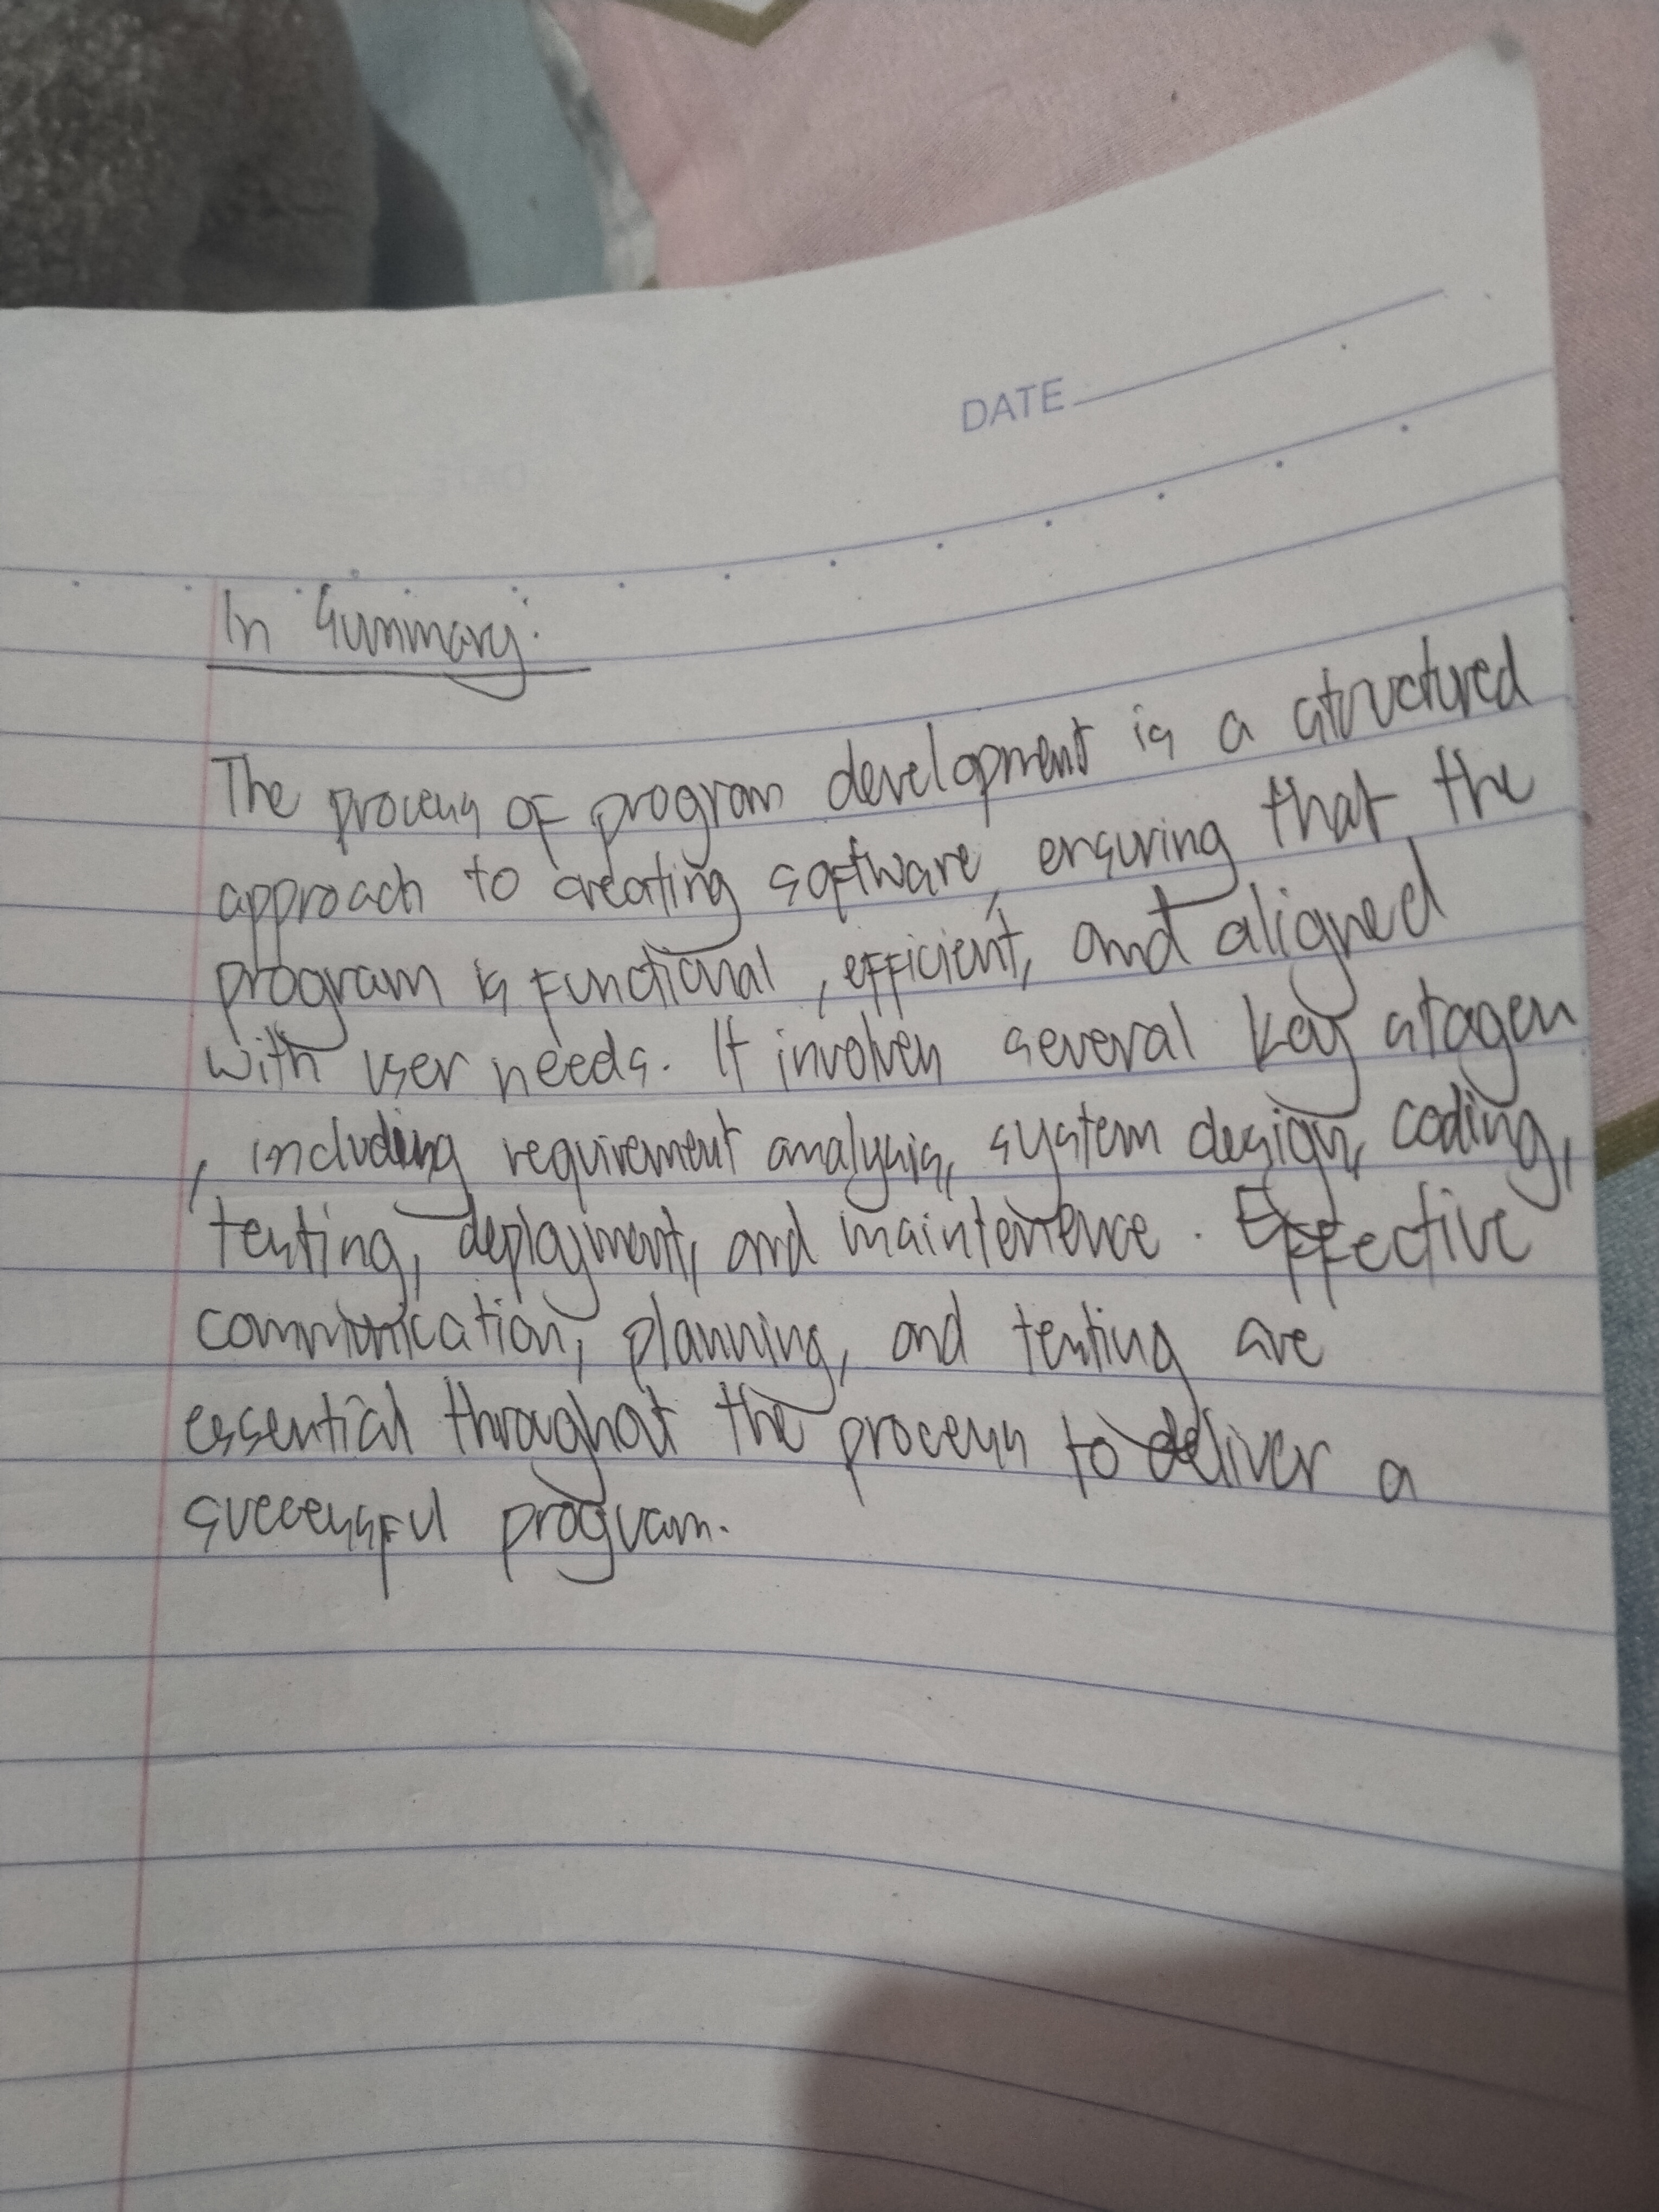 DATE
In Summary:
The process of program development is a structured
approach to creating software, ensuring that the
program is functional, efficient, and aligned
with user needs. It involves several key stages
, including requirement analysis, system design, coding,
testing, deployment, and maintenence. Effective
communication, planning, and testing are
essential throughout the process to deliver a
successful program.